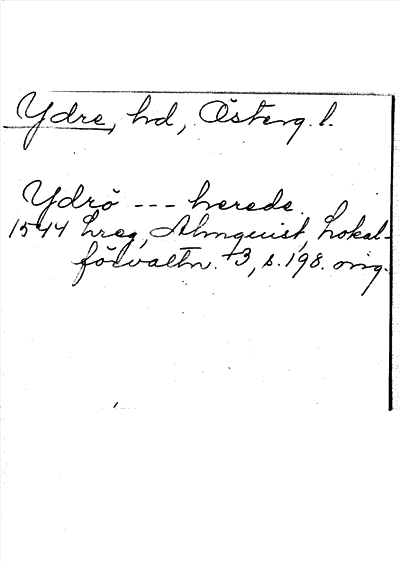 Ydre, hd, Österg. l.
Ydrö --- herede.
1544 hreg, Almquist, Lokal-
förvaltn. +3, s. 198. orig.